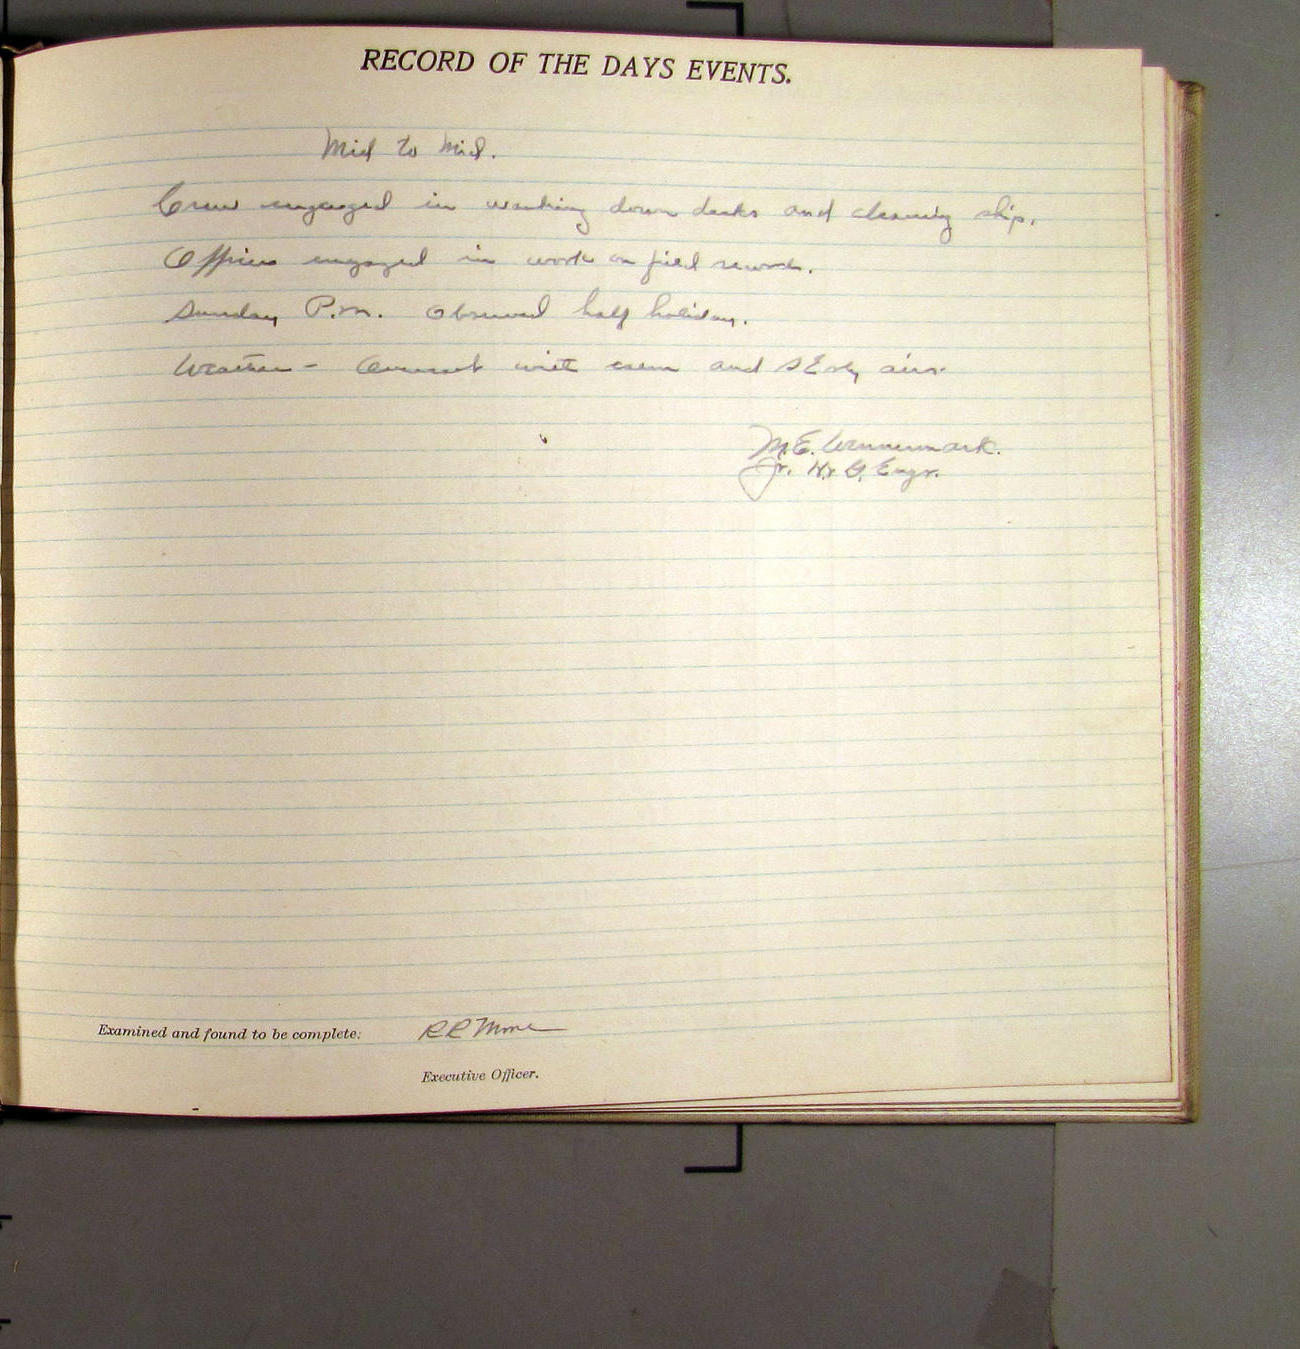 RECORD OF THE DAYS EVENTS.
Mid to Mid.
Crew engaged in washing down decks and cleaning ship.
Officers engaged in work on field records.
Sunday P.M. Observed half holiday.
Weather - Overcast with calm and SEly airs.
M.E. Wennermark.
Jr. H. & G. Engr.
Examined and found to be complete:
R R Moore
Executive Officer.